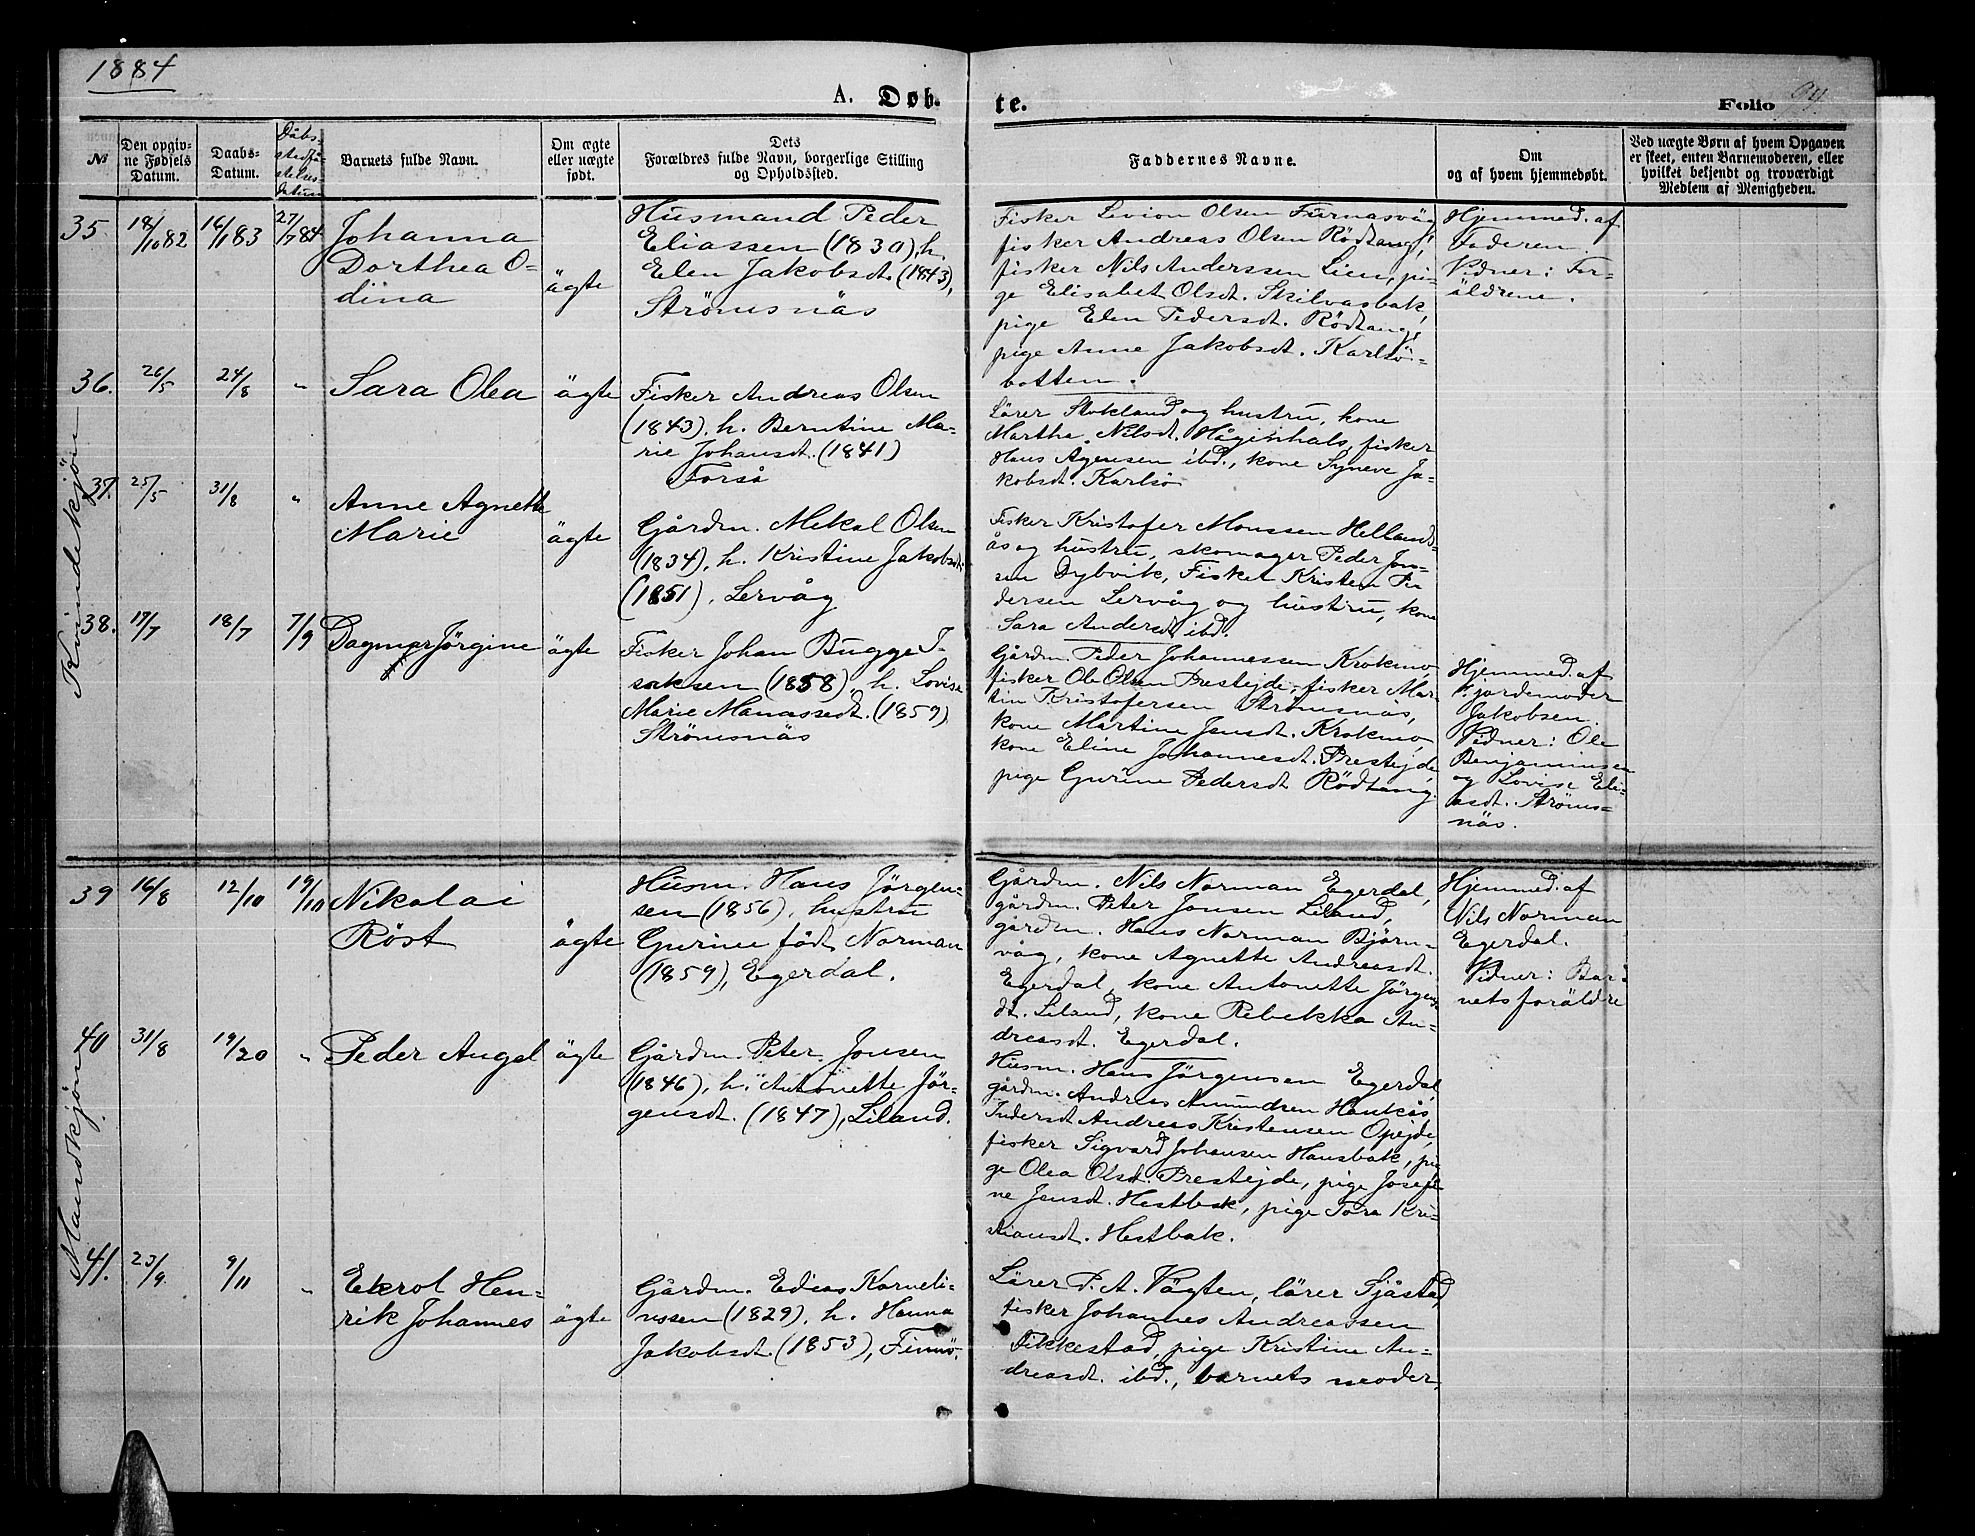 1884
A. Døb-
te.
Folio 94.
№
Den opgiv-
ne Fødsels
Datum.
Daabs-
Datum.
Dåbs-
stadfä-
stelses-
datum
Barnets fulde Navn.
Om ægte
eller uægte
født.
Dets
Forældres fulde Navn, borgerlige Stilling
og Opholdssted.
Faddernes Navne.
Om
og af hvem hjemmedøbt.
Ved uægte Børn af hvem Opgaven
er skeet, enten Barnemoderen, eller
hvilket bekjendt og troværdigt
Medlem af Menigheden.
Kvindekjön
35
18/10 82
16/1 83
27/7 84
Johanna
Dorthea O-
dina
ägte
Husmand Peder
Eliassen (1830), h.
Elen Jakobsdt. (1843),
Strömsnäs
Fisker Levion Olsen Furnesvåg,
fisker Andreas Olsen Rödtang,
fisker Nils Anderssen Lien, pi-
ge Elisabet Olsdt. Skilvasbak,
pige Elen Pedersdt. Rödtang,
pige Anne Jakobsdt. Karlsö-
botten.
Hjemmed. af
Faderen.
Vidner: For-
äldrene.
36.
26/5
24/8
"
Sara Olea
ägte
Fisker Andreas Olsen
(1843), h. Berntine Ma-
rie Johansdt. (1841)
Forså
Lärer Stokland og hustru, kone
Martha Nilsdt. Håginhals, fisker
Hans Agensen ibd., kone Syneve Ja-
kobsdt. Karlsö
37.
25/5
31/8
"
Anne Agnette
Marie
ägte
Gårdm. Mekal Olsen
(1834), h. Kristine Jakobsdt.
(1851), Lervåg
Fisker Kristofer Monssen Hellands-
ås og hustru, skomager Peder Jon-
sen Dybvik, Fisker Kristen Pe-
dersen Lervåg og hustru, kone
Sara Andersdt. ibd.
38.
17/7
18/7
7/9
Dagmar Jörgine
ägte
Fisker Johan Bugge I-
saksen (1858), h. Lovise
Marie Manassedt. (1859)
Strömsnäs
Gårdm. Peder Johannessen Krokmo,
fisker Ole Olsen Prestejde, fisker Mar-
tin Kristofersen Strömsnäs,
kone Martine Jensdt. Krokmo,
kone Eline Johannesdt. Prestejde,
pige Gurine Pedersdt. Rödtang.
Hjemmed. af
Fjordemoder
Jakobsen.
Vidner: Ole
Benjaminsen
og Lovise Eli-
asdt. Ströms-
näs.
Mandkjön
39
16/8
12/10
19/10
Nikolai
Röst
ägte
Husm. Hans Jörgen-
sen (1856), hustru
Gurine född Norman
(1859), Egerdal.
Gårdm. Nils Norman Egerdal,
gårdm. Peter Jonsen Liland,
gårdm. Hans Norman Bjørn-
våg, kone Agnette Andreasdt.
Egerdal, kone Antonette Jörgens-
dt. Liland, kone Rebekka An-
dreasdt. Egerdal.
Hjemmed. af
Nils Norman
Egerdal.
Vidner: Bar-
netsforäldre
40
31/8
19/20
"
Peder Angel
ägte
Gårdm. Peter Jonsen
(1846), h. Antonette Jör-
gensdt. (1847), Liland.
Husm. Hans Jörgensen Egerdal,
gårdm. Andreas Amundsen Haukås,
Inderst Andreas Kristensen Opejde,
fisker Sigvard Johansen Hansbak, pi-
ge Olea Olsdt. Prestejde, pige Josefi-
ne Jensdt. Hestbak, pige Tora Kri-
stiansdt. Hestbak.
41.
23/9.
9/11
"
Ekrol Hen-
rik Johannes
ägte
Gårdm. Edias Korneli-
ussen (1829), h. Hanna
Jakobsdt. (1853), Finnö.
Lärer P. A. Vägten, lärer Sjåstad,
fisker Johannes Andreassen
Dikkestad, pige Kristine An-
dreasdt. ibd., barnets moder.